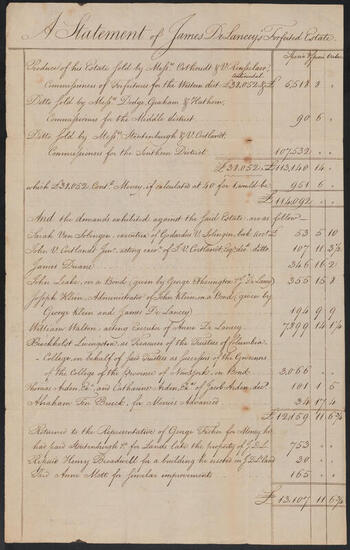 A Statement of James De Lancey's Forfeited Estate.
Produce of his Estate sold by Mess.rs Cortlandt & V. Renselaer,
Continental
Commissioners of Forfeitures for the Western dist. £38,052 & £ 5,518 8
Ditto sold by Mess.rs Dodge, Graham & Hathorn,
Commissioners for the Middle district 90 6
Ditto sold by Mess.rs Stoutenburgh & V. Cortlandt,
Commissioners for the Southern District 107532
£38,052 £113,140 14
which £38,052 Cont.l Money, if calculated at 40 for 1, would be 951 6
£114,092
And the demands exhibited against the said Estate, are as follow
Sarah Van Solingen, executrix of Godardus V. Solingen, book debt £ 53 5 10
John V. Cortlandt Jun.r acting exec.r of V. Cortlandt, Esq.r dec.d ditto 107 11 3½
James Duane 346 16 2
John Leake, on a Bond (given by George Harrington & De Lancey) 355 15 8
Joseph Klein, Administrator of John Klein, on a Bond, given by
George Klein and James De Lancey) 194 9 9
William Walton, acting Executor of Anne De Lancey 7399 14 1¼
Brockholst Livingston, as Treasurer of the Trustees of Columbia
College, in behalf of said Trustees as Successors of the Governors
of the College of the Province of New York, on Bond 3,066
Thomas Arden Ex.r and Catharine Arden, Ex.x of Jacob Arden, dec.d 101 1 5
Abraham Ten Broeck, for Monies Advanced 34 17 4
£ 12,159 11 6¾
Returned to the Representative of George Fisher for Money he
had paid Stoutenburgh &c for Lands late the property of J. D. L. 753
Repaid Henry Broadwell for a building he erected on J. D. L. land 30
Paid Anne Mott for similar improvements 165
£ 13,107 11 6¾